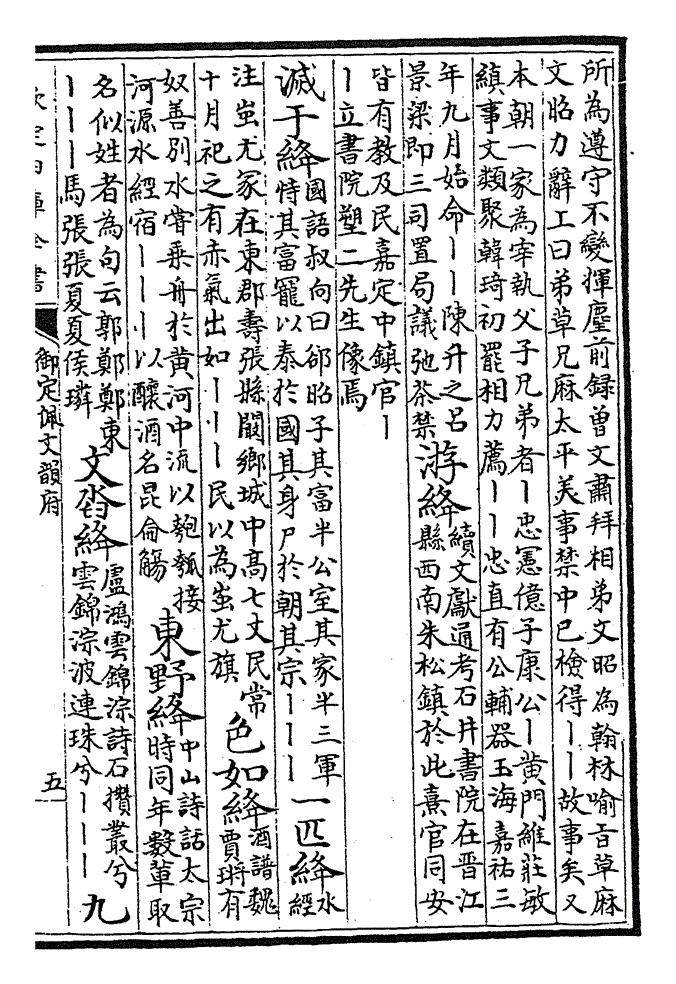 所為遵守不變揮麈前録曾文肅拜相弟文昭為翰林喻旨草麻
文昭力辭工曰弟草兄麻太平美事禁中已檢得丨丨故事矣又
本朝一家為宰執父子兄弟者丨忠憲億子康公丨黄門維莊敏
縝事文類聚韓琦初罷相力薦丨丨忠直有公輔器玉海嘉祐三
年九月始命丨丨陳升之吕
景梁即三司置局議弛茶禁
游絳
續文獻通考石井書院在晋江
縣西南朱松鎮於此熹官同安
皆有教及民嘉定中鎮官丨
丨立書院塑二先生像焉
滅于絳
國語叔向曰郤昭子其富半公室其家半三軍
恃其富寵以泰於國其身尸於朝其宗丨丨丨
一匹絳
水
經
注蚩尤冢在東郡壽張縣闞鄉城中髙七丈民常
十月祀之有赤氣出如丨丨丨民以為蚩尤旗
色如絳
酒譜魏
賈將有
奴善别水嘗乗舟於黄河中流以匏瓠接
河源水經宿丨丨丨以釀酒名昆侖觴
東野絳
中山詩話太宗
時同年數軰取
名似姓者為句云郭鄭鄭東
丨丨丨馬張張夏夏侯璘
文沓絳
盧鴻雲錦淙詩石攢叢兮
雲錦淙波連珠兮丨丨丨
九
欽定四庫全書
御定佩文韻府
五